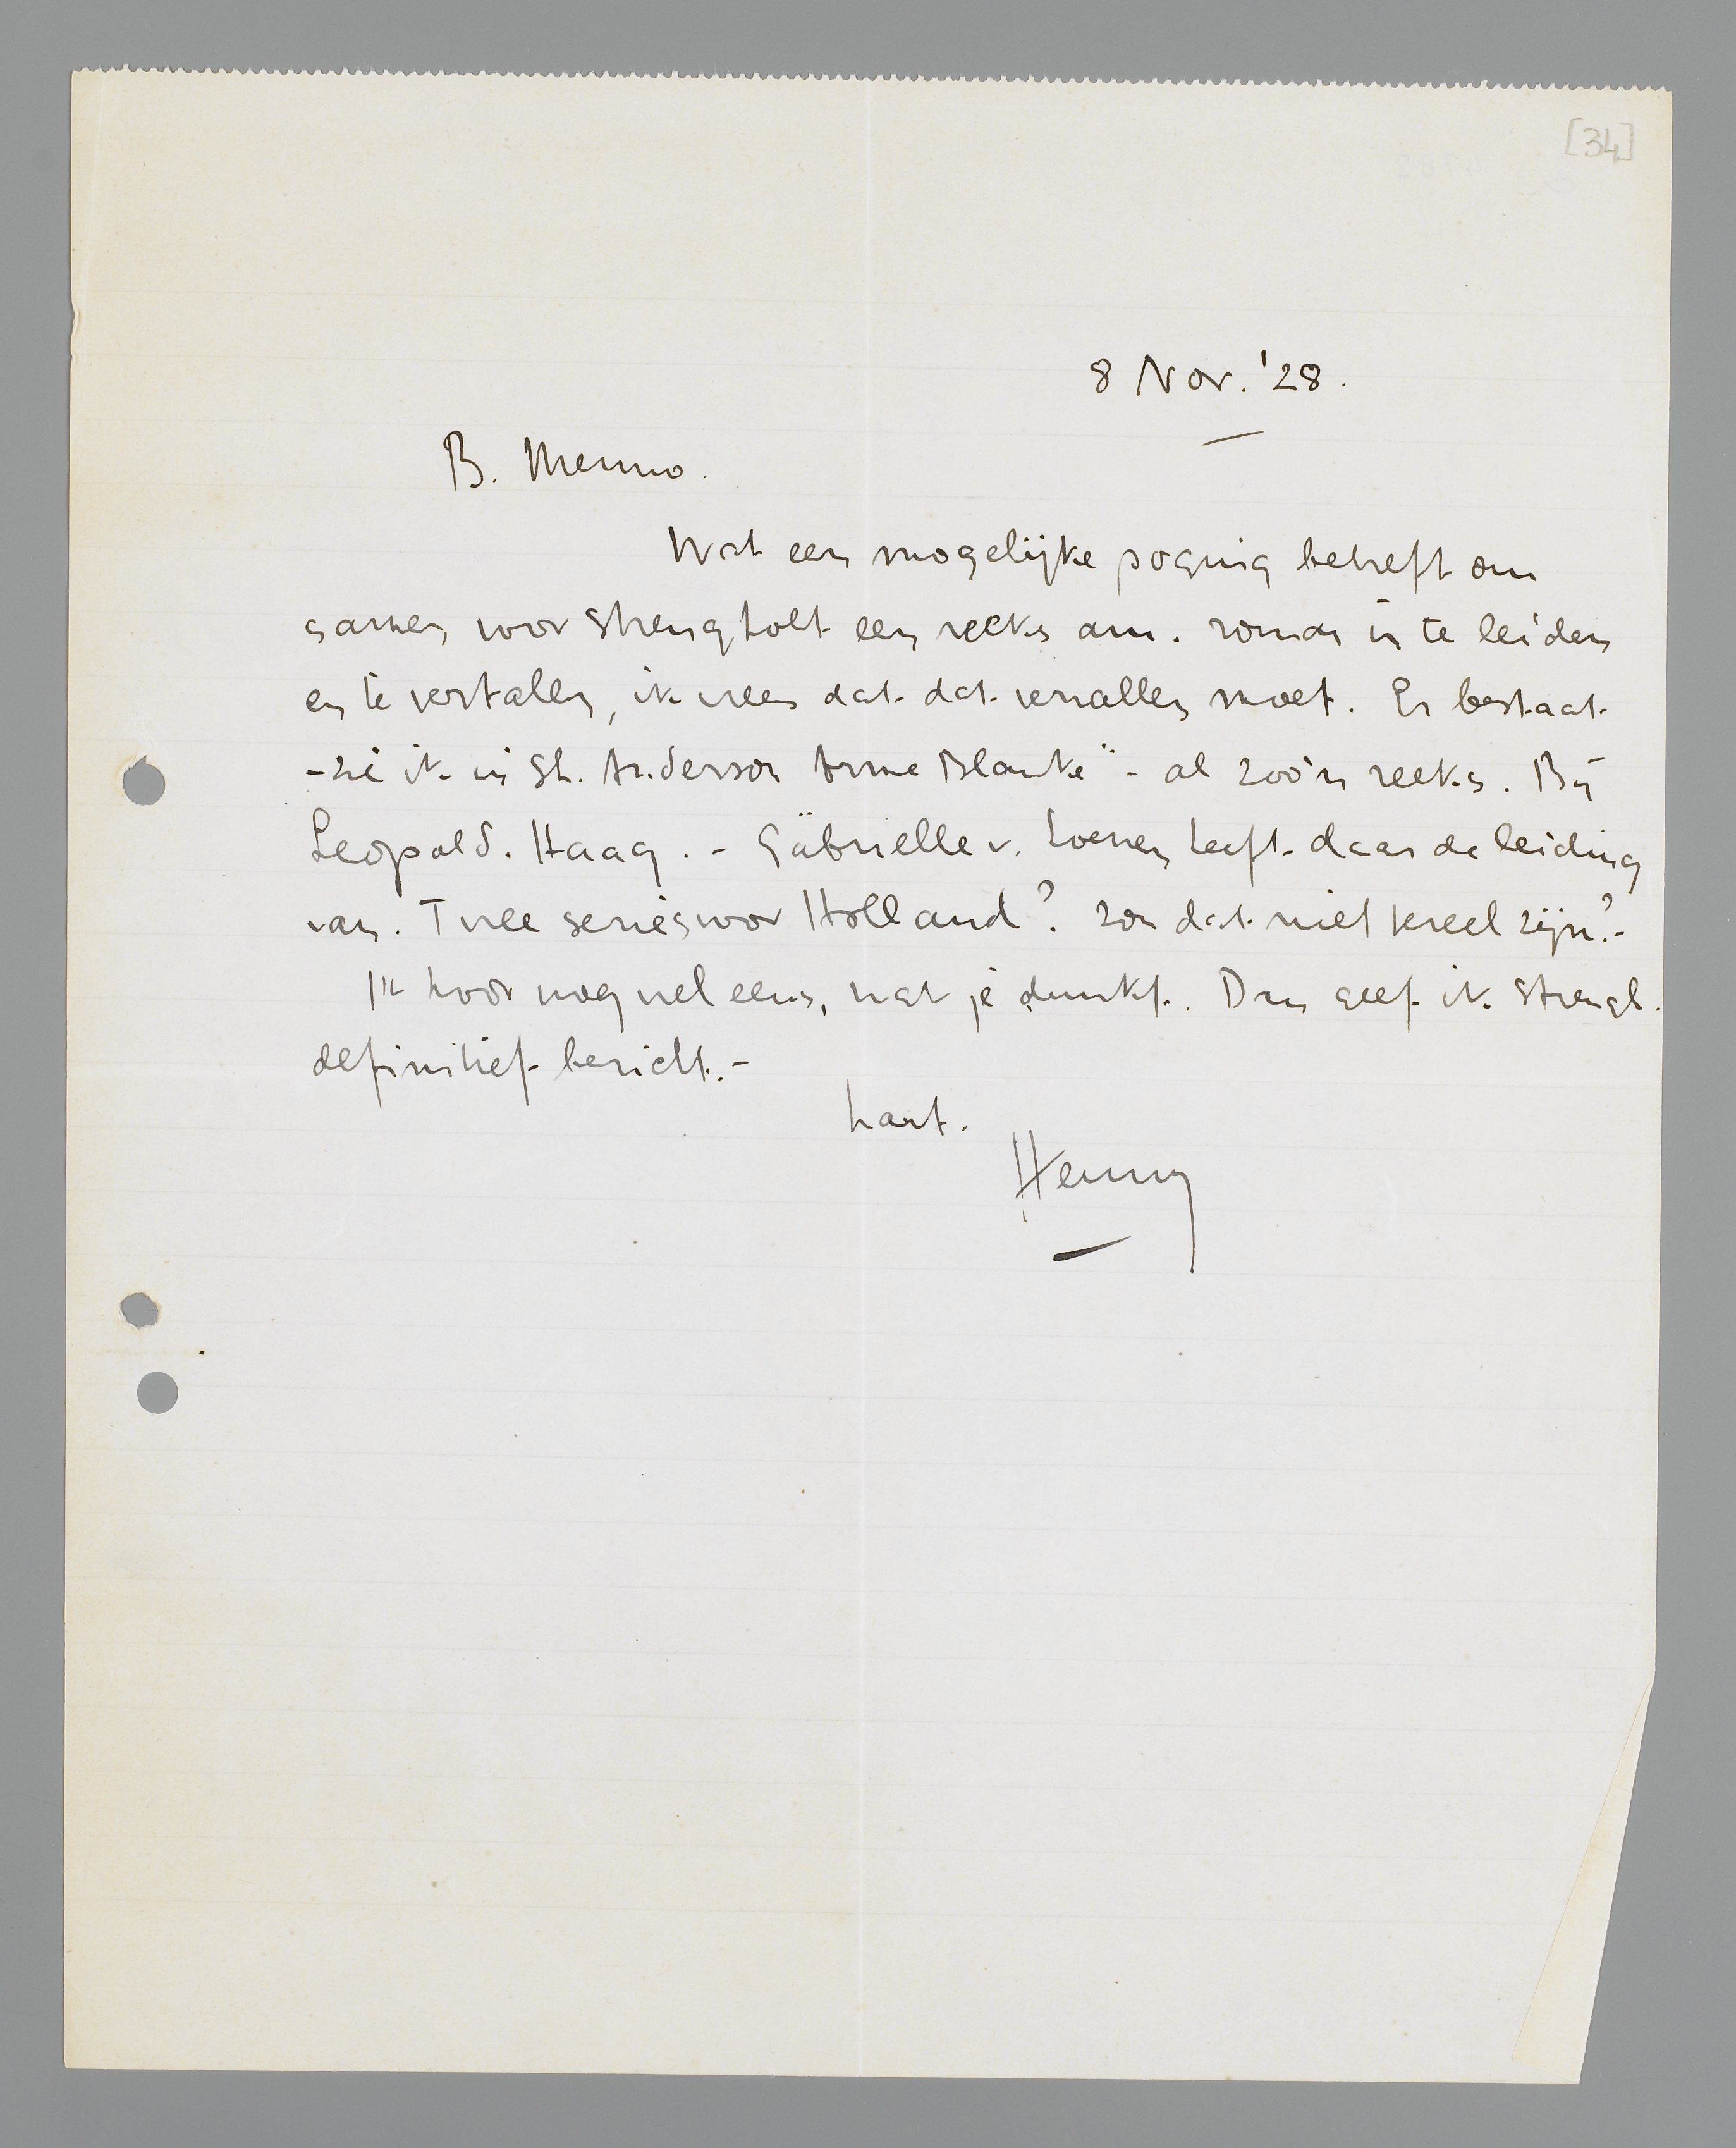 [34]
8 Nov. '28.
B. Menno.
Wat een mogelijke poging betreft om
samen voor Strengholt een reeks am. roman in te leiden
en te vertalen, ik vrees dat dat vervallen moet. Er bestaat
- zie ik in Sh. Anderson Arme Blanke" - al zoo'n reeks. Bij
Leopold. Haag. - Gabrielle v. Loenen heeft daar de leiding
van. Twee series voor Holland? Zou dat niet teveel zijn? -
Ik hoor nog wel eens, wat je dunkt. Dan geef ik Strengh.
definitief bericht. -
hart.
Henny